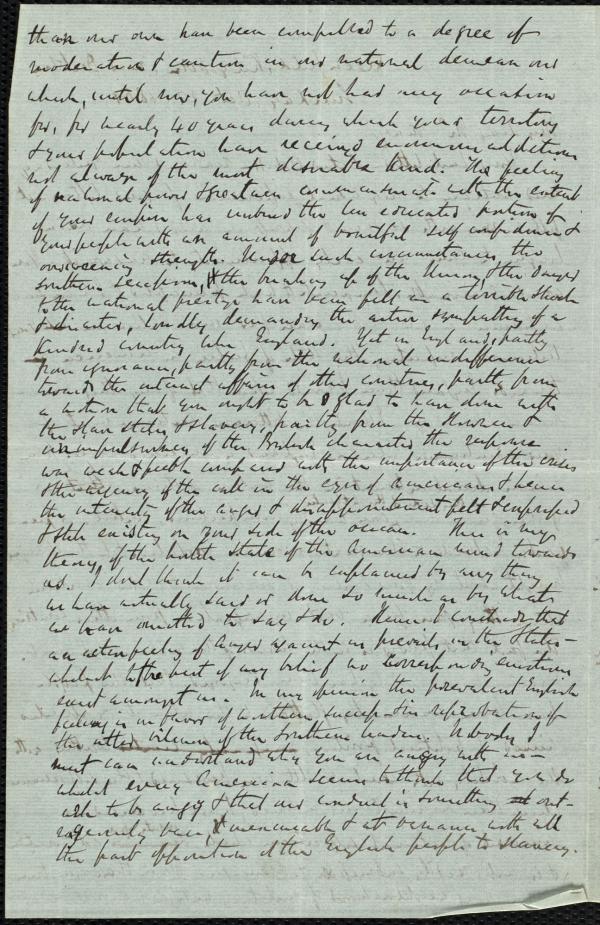 than our own have been compelled to a degree of
moderation & caution in our national demeanour
which, until now, you have not had any occasion
for, for nearly 40 years during which your territory
& your population have received enormous additions
not always of the most desirable kind. The feeling
of national power & greatness commensurate with the extent
of your empire has imbued the less educated portion of
your people with an amount of boastful self confidence &
overweening strength. Under such circumstances, the
southern secession, & the breaking up of the Union, & the danger
to the national prestige have been felt as a terrible shock
& disaster, loudly demanding the active sympathy of a
kindred country like England. Yet in England, partly
from ignorance, partly from the national indifference
towards the internal affairs of other countries, partly from
a notion that you ought to be glad to have done with
the slave states & slavery, partly from the slowness &
unimpulsiveness of the British character the response
was weak & feeble compared with the importance of the crisis
& the urgency of the call in the eyes of Americans & hence
the intensity of the anger & disappointment felt & expressed
& still existing on your side of the ocean. This is my
theory, of the hostile state of the American mind towards
us. I don't think it can be explained by any thing
we have actually said or done so much as by what
we have omitted to say & do. Hence I conclude that
an active feeling of anger against us prevails in the States -
which to the best of my belief no corresponding emotions
exist amongst us. In my opinion the prevalent English
feeling is in favor of northern success & in reprobation of
the utter villainy of the Southern leaders. Nobody I
meet can understand why you are angry with us -
whilst every American seems to think that you do
well to be angry & that our conduct is something out-
rageously base, & unreasonable & at variance with all
the past opposition of the English people to slavery.